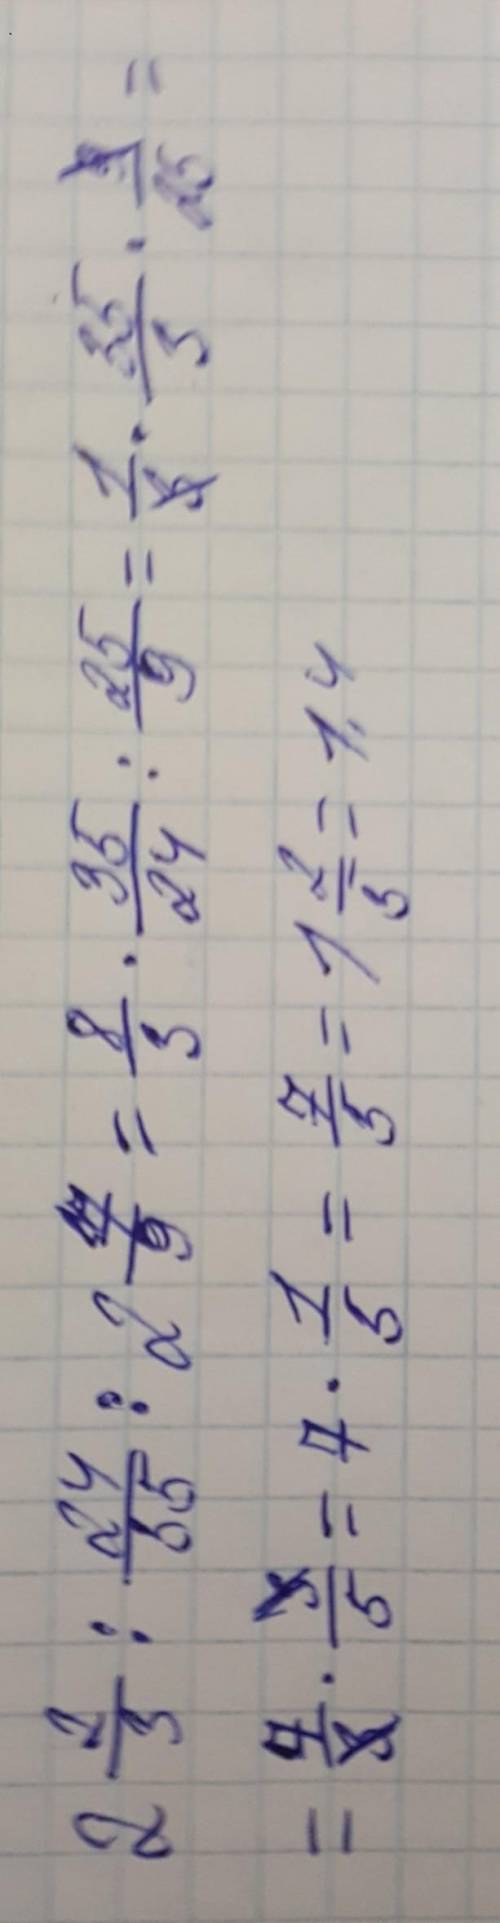 2 2/3 : 24/35 : 2 7/9 = 8/3 · 35/24 : 25/9 = 1/3 · 35/3 · 9/25 =
= 7/3 · 3/5 = 7 · 1/5 = 7/5 = 1 2/5 = 1,4